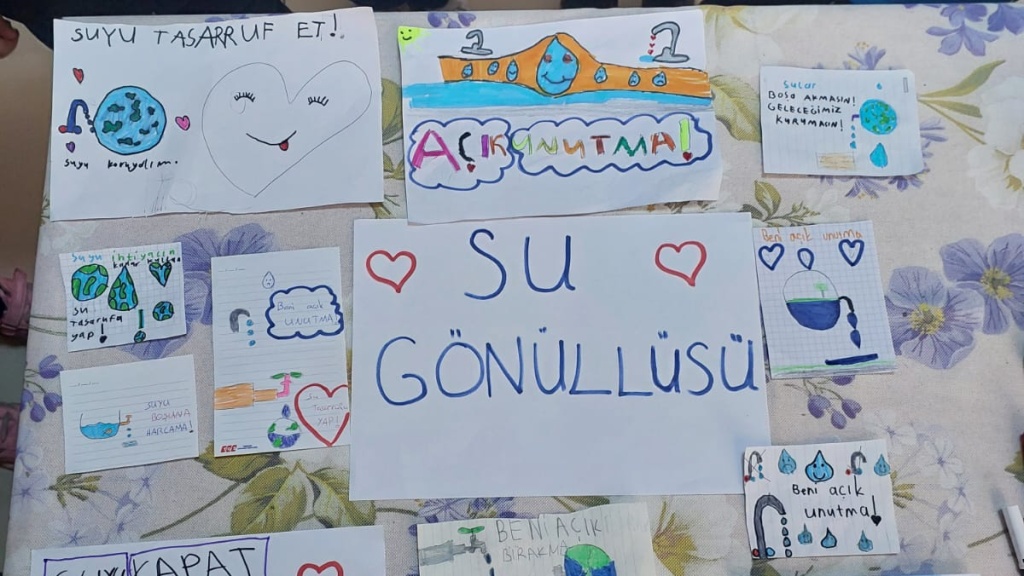 SUYU TASARRUF ET!
suyu koruyalım.
AÇIK UNUTMA!
Sular
BOŞA AKMASIN!
GELECEĞİMİZ
KURUMASIN!
suyu ihtiyacın
kadar
su
Tasarrufu
yap!
Beni açık
UNUTMA
Su
Tasarrufu
YAP!
SU
GÖNÜLLÜSÜ
Beni açık unutma
SUYU
BOŞUNA
HARCAMA!
Beni açık
unutma!
SUYU KAPAT
BENİ AÇIK
BIRAKMA